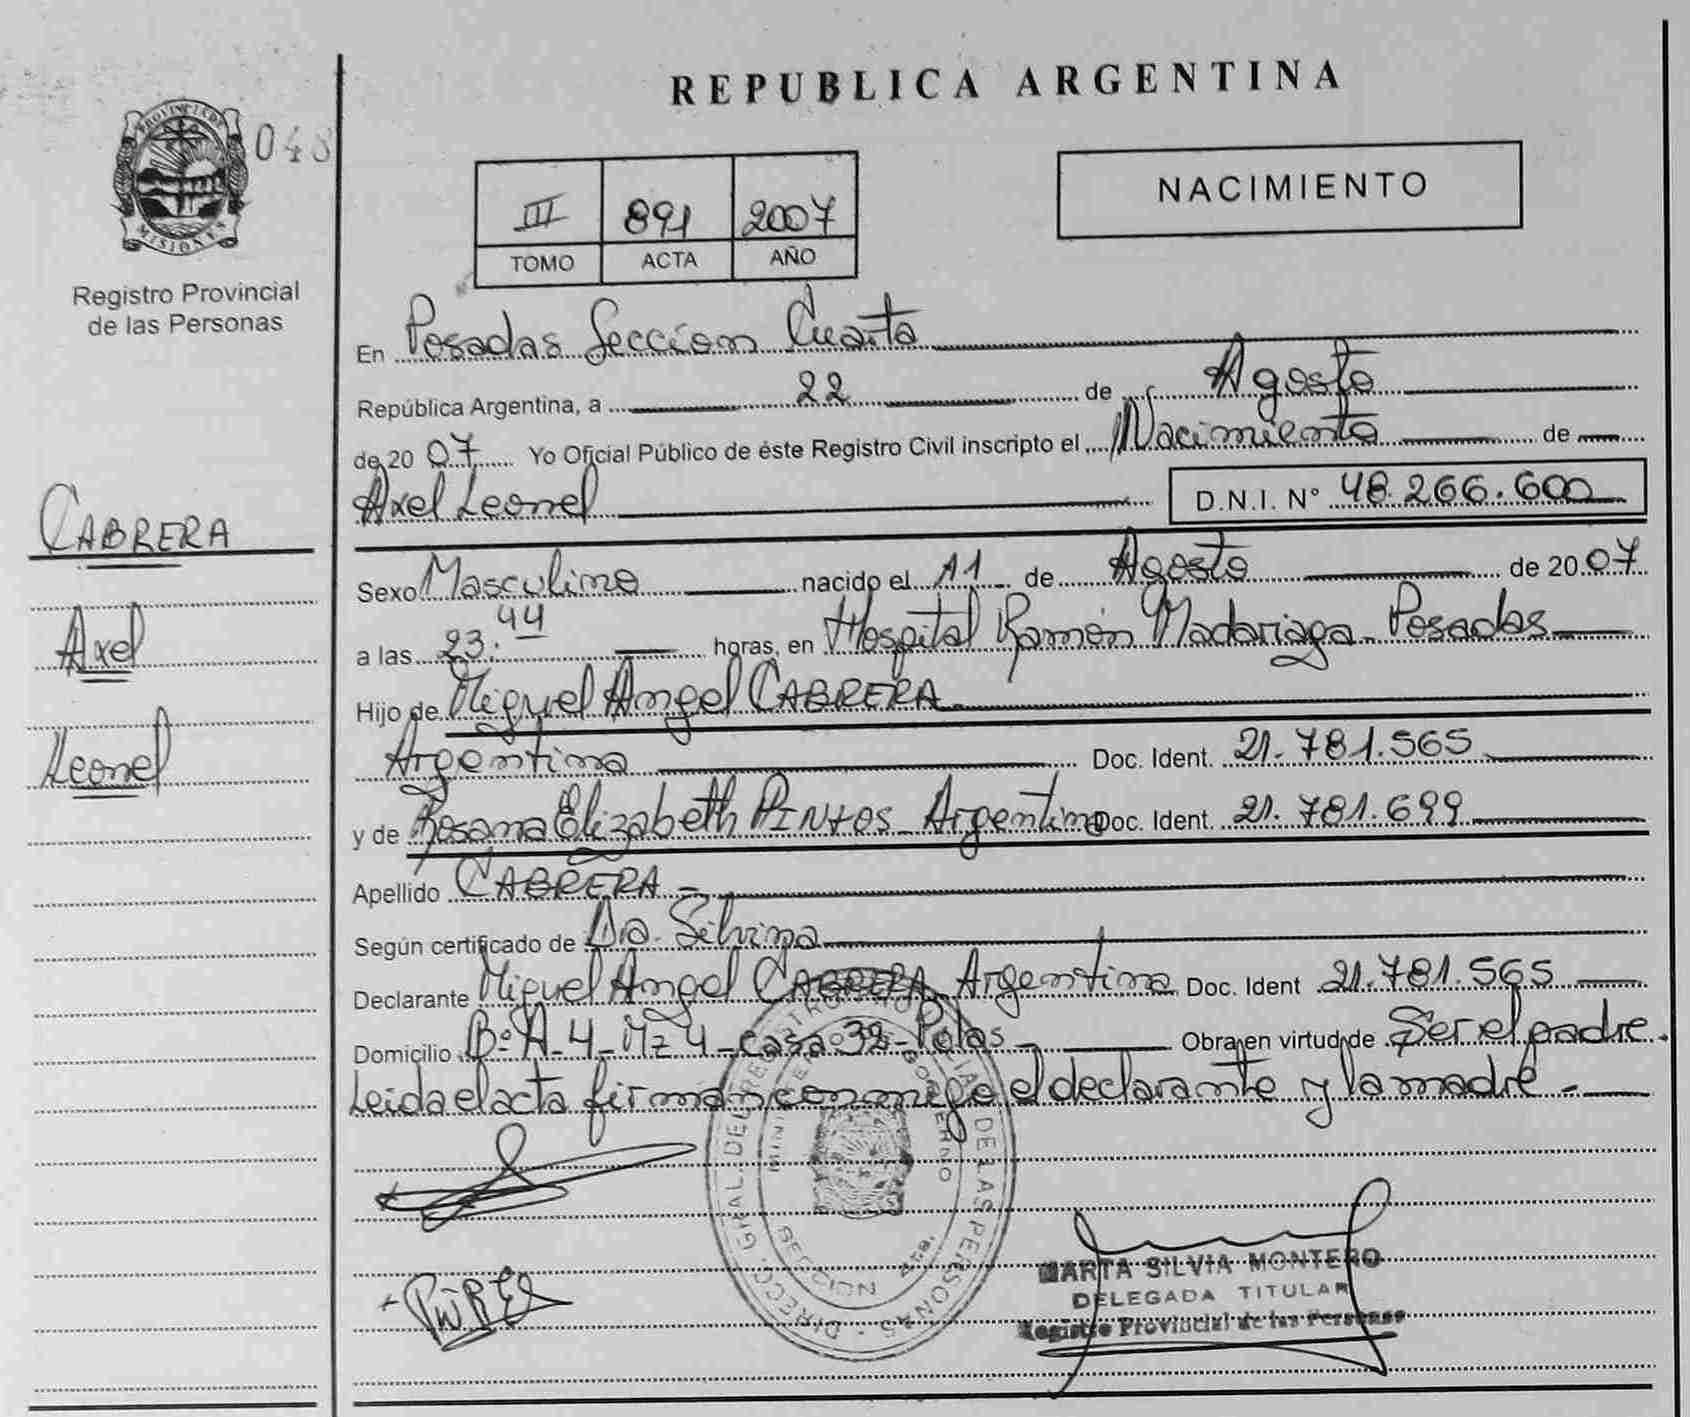 REPUBLICA ARGENTINA
PROVINCIA DE
MISIONES
048
Registro Provincial
de las Personas
III 891 2007
TOMO ACTA AÑO
NACIMIENTO
En Posadas Seccion Cuarta
República Argentina, a 22 de Agosto
de 20 07 Yo Oficial Público de éste Registro Civil inscripto el Nacimiento de
Axel Leonel D.N.I. N° 48.266.600
CABRERA
Axel
Leonel
Sexo Masculino nacido el 11 de Agosto de 20 07
a las 23:44 horas, en Hospital Ramón Madariaga - Posadas
Hijo de Miguel Angel CABRERA
Argentino Doc. Ident. 21.781.565
y de Rosana Elizabeth PINtos - Argentina Doc. Ident. 21.781.699
Apellido CABRERA -
Según certificado de Dra. Silvina
Declarante Miguel Angel CABRERA Argentino Doc. Ident 21.781.565
Domicilio B° A-4 - Mz 4 - Casa 32 - Obra en virtud de Ser el padre.
Leida el acta firman conmigo el declarante y la madre -
DIRECC. GRAL. DEL REGISTRO DE LAS PERSONAS
SECCION 4ta.
MARTA SILVIA MONTERO
DELEGADA TITULAR
Registro Provincial de las Personas